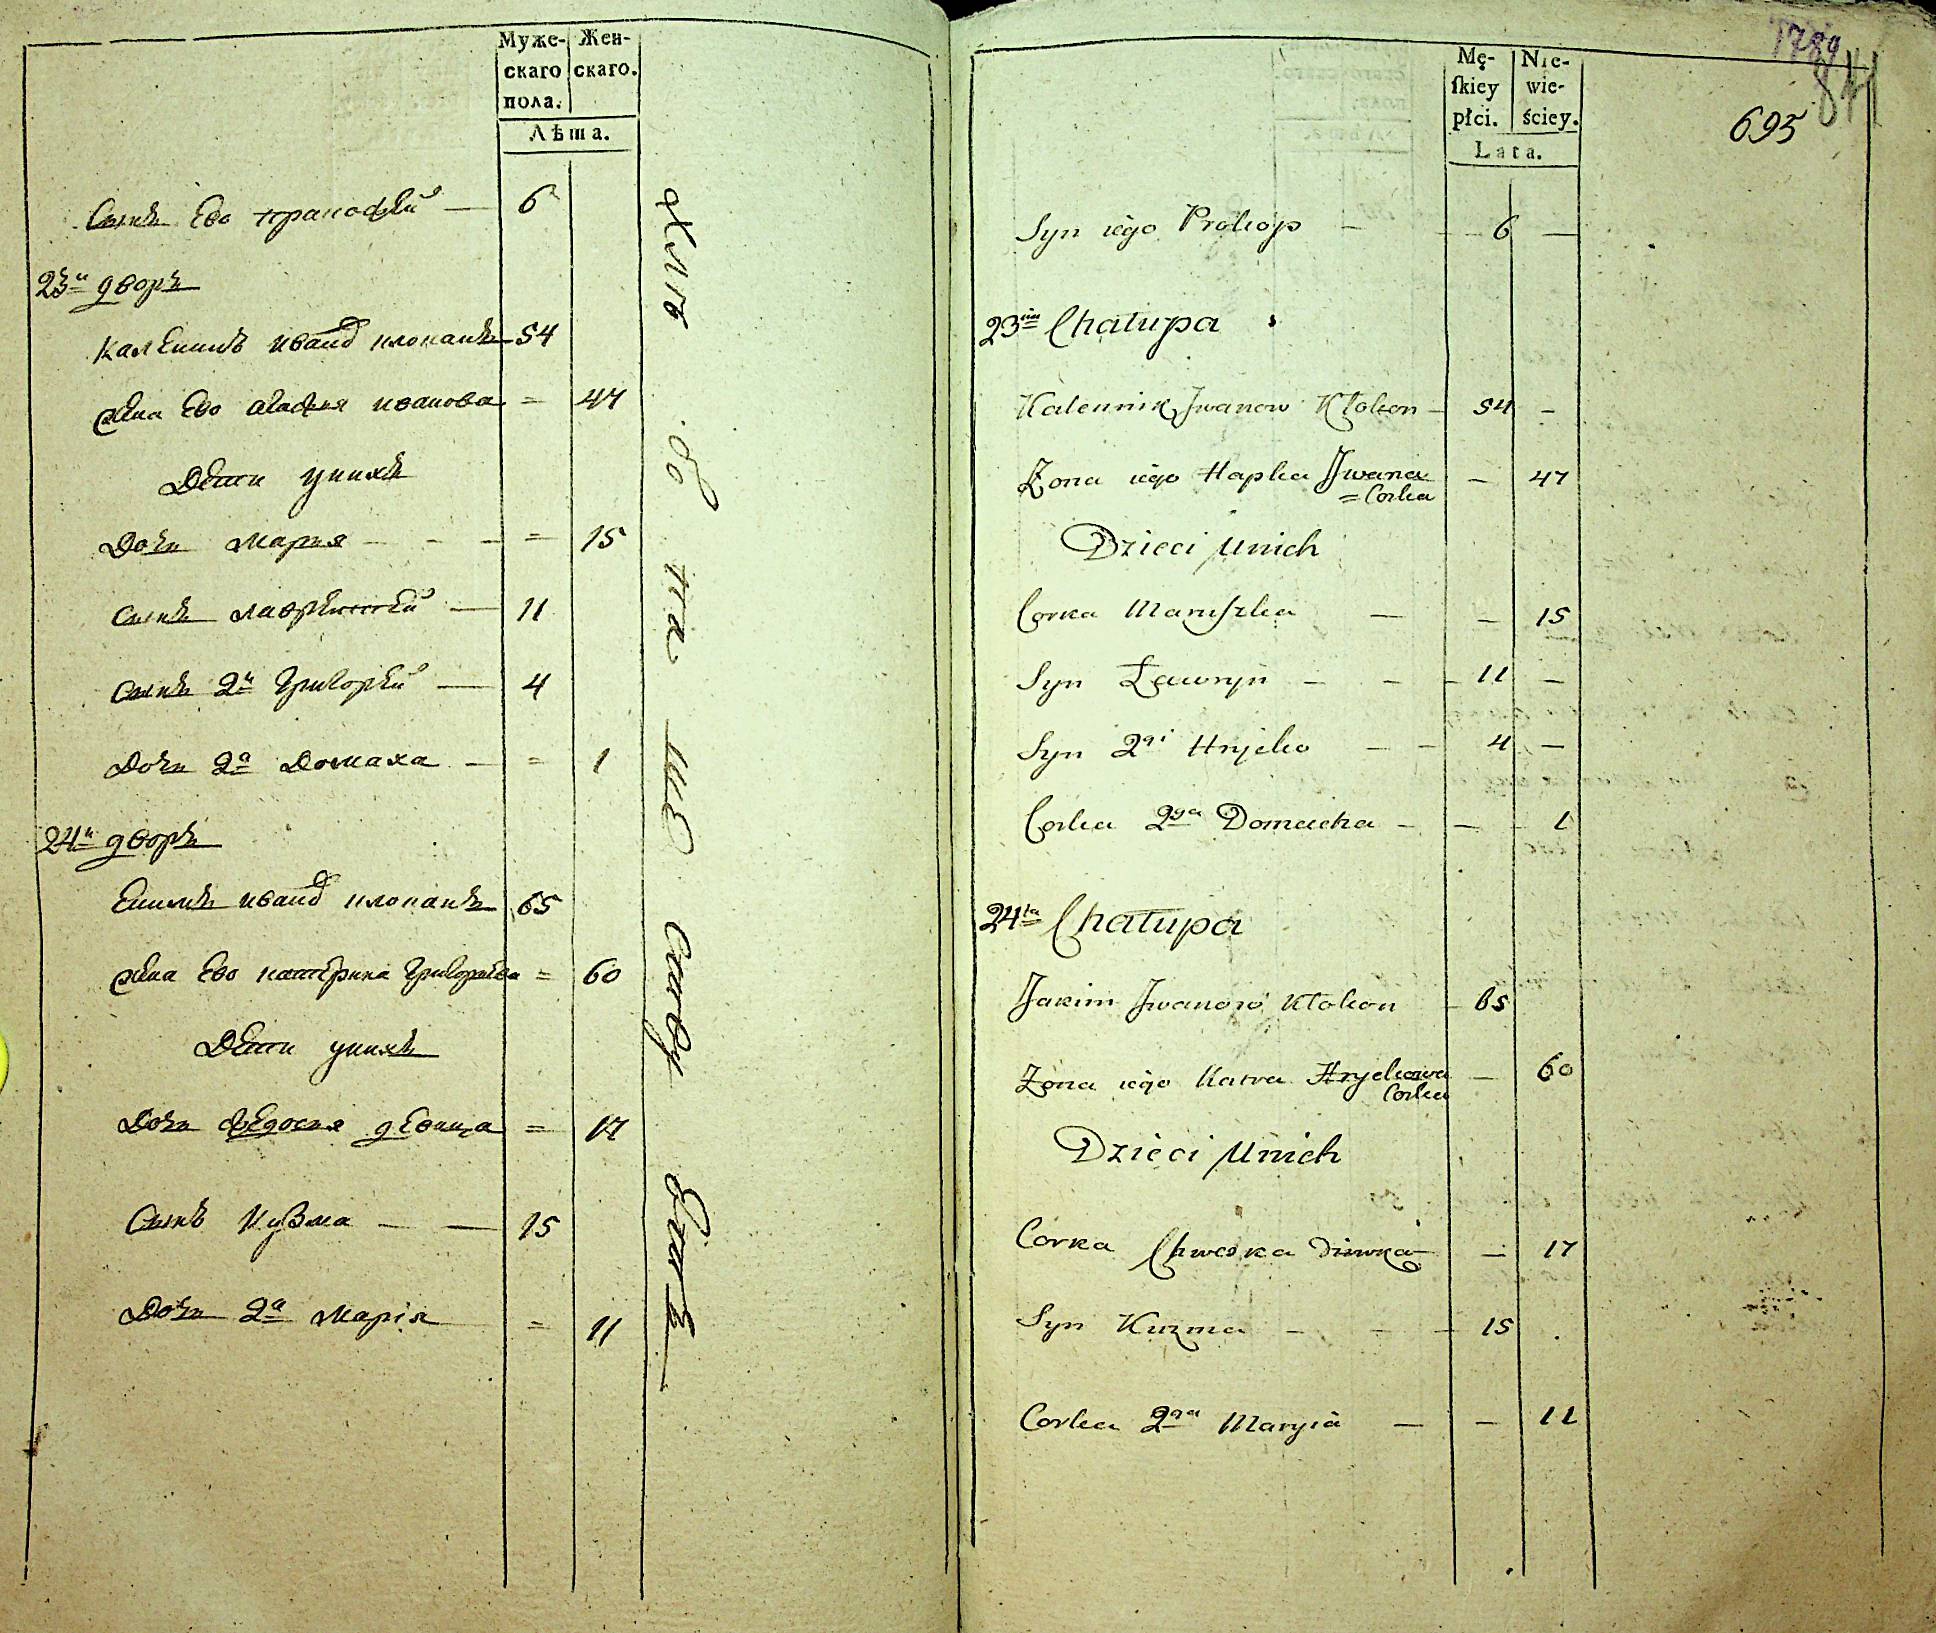 Муже-
скаго
пола.
Жен-
скаго.
Лѣта.
Сынъ Ево прокофей — 6
23й дворъ
Каленикъ иванов клокапъ 54
Жена Ево агафья иванова = 47
Дети унихъ
Дочь Мария - - - = 15
Сынъ лаврентей — 11
Сынъ 2й Григорей — 4
Дочь 2я Домаха - = 1
24й дворъ
Екимъ иванов клокапъ 65
Жена Ево катерина Григорьева = 60
Дети унихъ
Дочь Федосия девица = 17
Сынъ Кузма — — 15
Дочь 2я Мария = 11
Mę-
ſkiey
płci.
Nie-
wie-
ściey.
Lata.
1789
695
Syn iego Prokop — — 6 —
23cia Chałupa
Kalennik Jwanow Kłokon — 54 —
Zona iego Hapka Jwana — 47
= Corka
Dzieci Unich
Corka Maruſzka — — 15
Syn Ławryn — — — 11 —
Syn 2gi Hryćko — — 4 —
Corka 2ga Domacha — — 1
24ta Chałupa
Jakim Jwanow Kłokon — 65
Zona iego Katra Hryckowa — 60
Corka
Dzieci Unich
Corka Chweska Diewka — 17
Syn Kuzma — — — 15 .
Corka 2ga Maryia — — 11